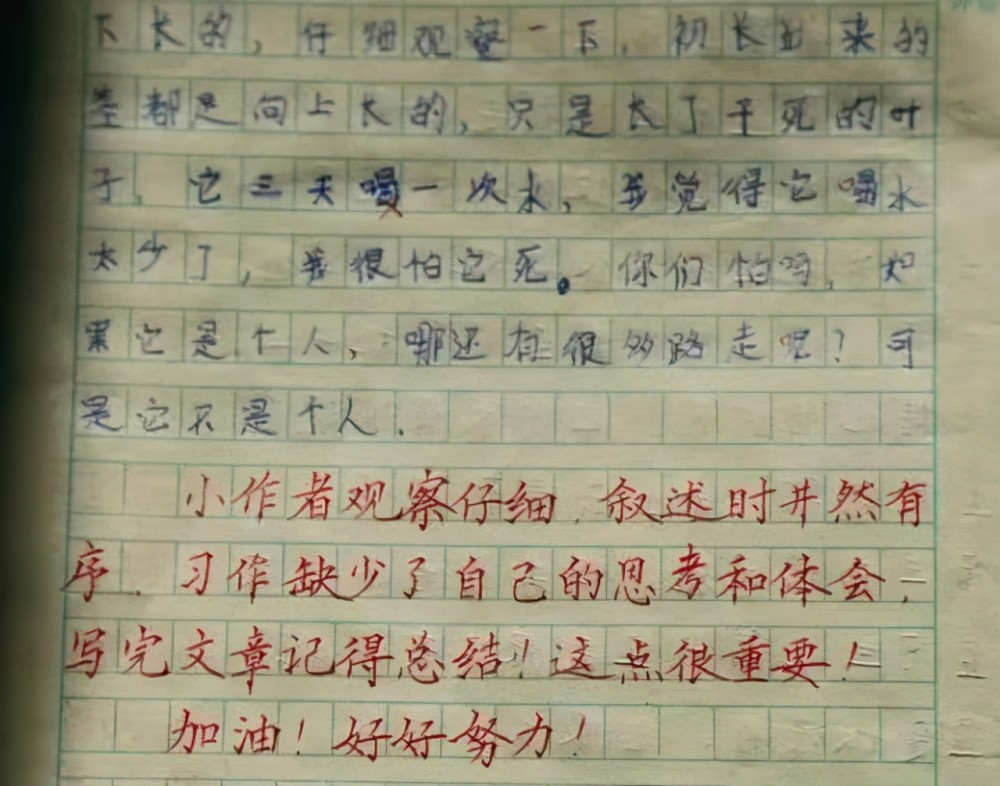 下长的，仔细观察一下，初长出来的
茎都是向上长的，只是长了干死的叶
子，它三天喝一次水，我觉得它喝水
太少了，我很怕它死。你们怕吗，如
果它是个人，哪还有很多路走呢？可
是它不是个人．
小作者观察仔细．叙述时井然有
序．习作缺少了自己的思考和体会，
写完文章记得总结！这点很重要！
加油！好好努力！